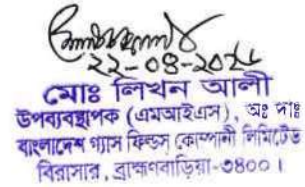 ২২-০৪-২০২৬
মোঃ লিখন আলী
উপব্যবস্থাপক (এমআইএস), অঃ দাঃ
বাংলাদেশ গ্যাস ফিল্ডস্ কোম্পানী লিমিটেড
বিরাসার, ব্রাহ্মণবাড়িয়া-৩৪০০।